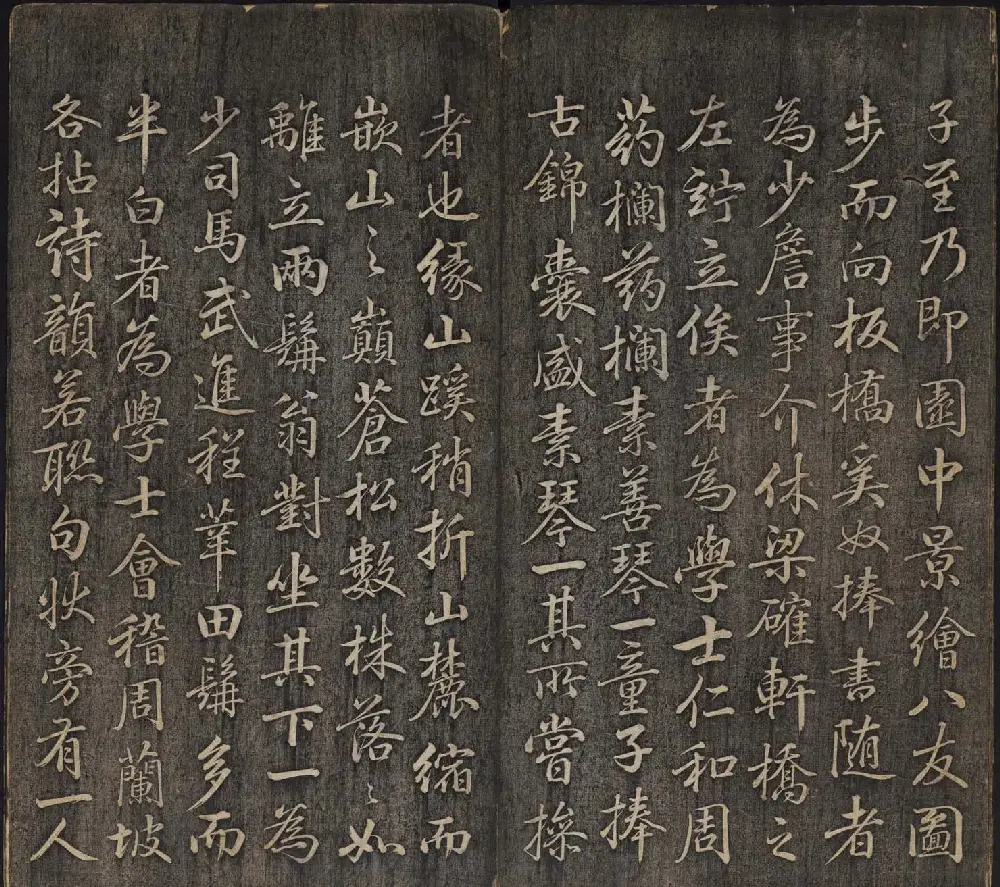 子至乃即園中景繪八友圖
步而向板橋奚奴捧書随者
為少詹事介休梁確軒橋之
左竚立俟者為學士仁和周
葯欄葯欄素善琴一童子捧
古錦囊盛素琴一其所嘗操
者也缘山蹊稍折山麓缩而
嵌山之巔蒼松數株落〻如
離立兩鬅翁對坐其下一為
少司馬武進程莘田鬅多而
半白者為學士會稽周蘭坡
各拈詩韻若聯句狀旁有一人